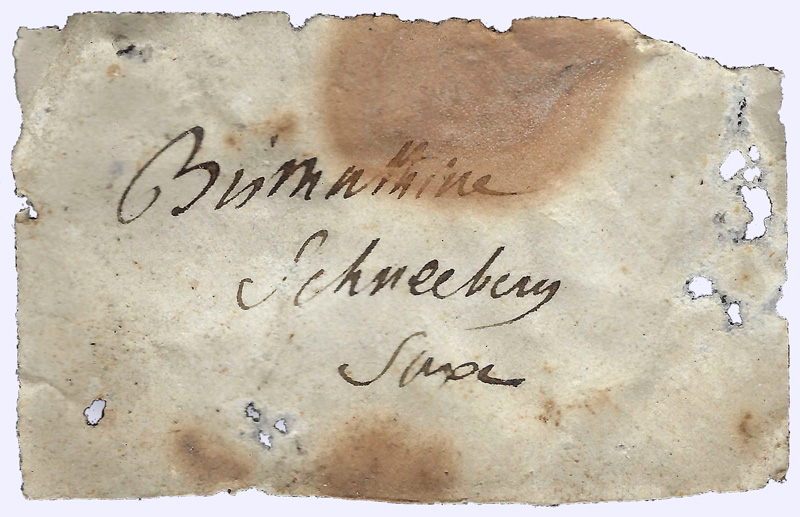 Bismuthine
Schneeberg
Saxe